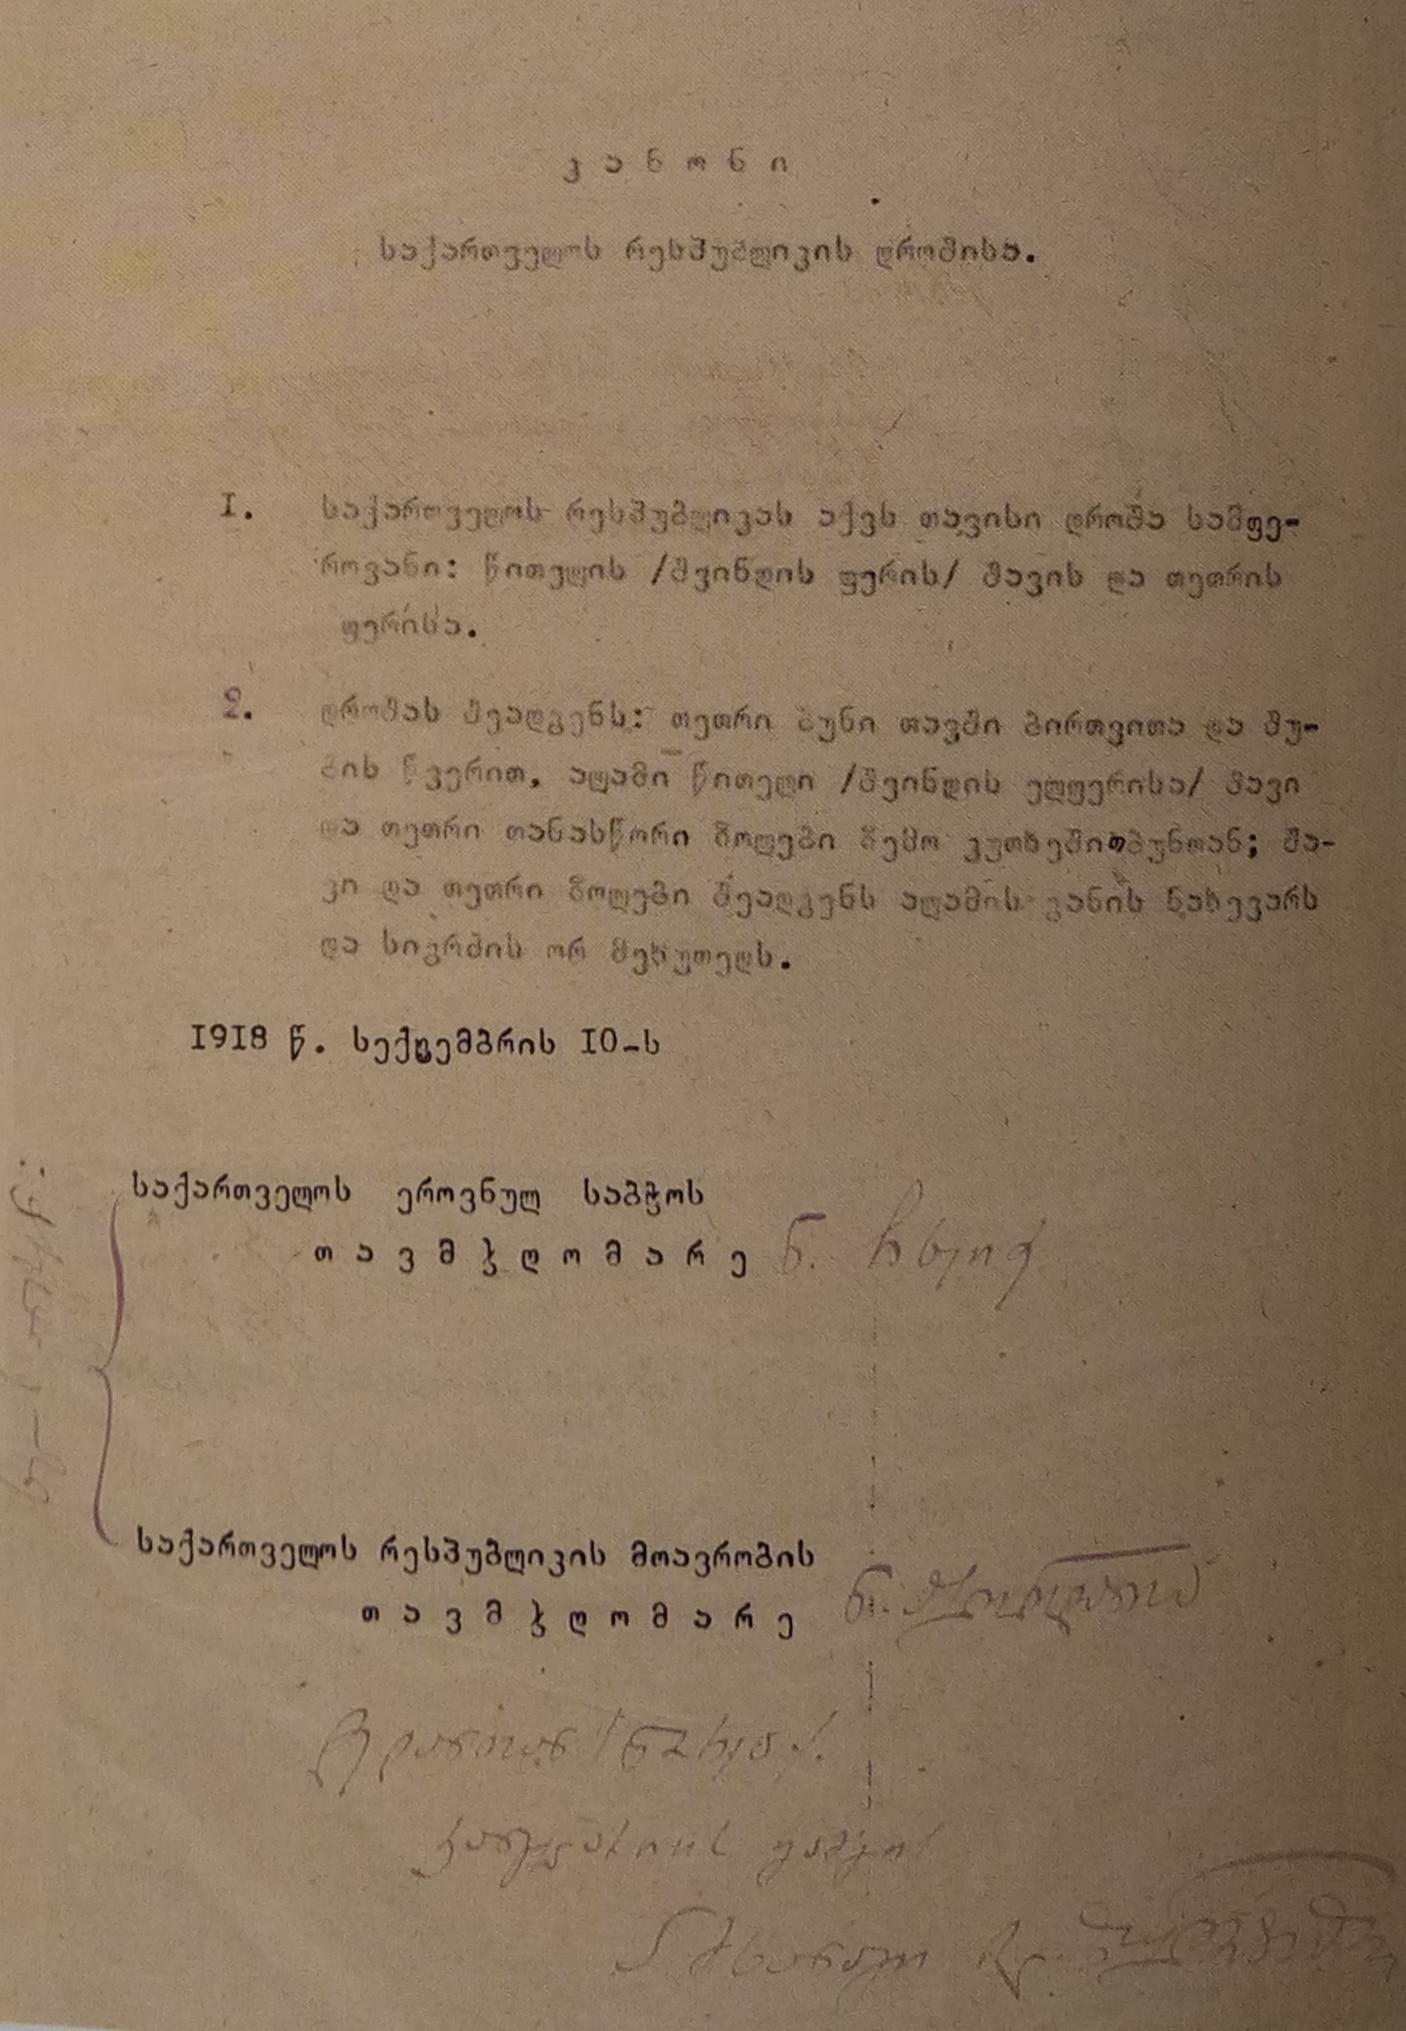 კანონი
საქართველოს რესპუბლიკის დროშისა.
I. საქართველოს რესპუბლიკას აქვს თავისი დროშა სამფე-
როვანი: წითელის /შვინდის ფერის/ შავის და თეთრის
ფერისა.
2. დროშას შეადგენს: თეთრი ბუნი თავში ბირთვითა და შუ-
ბის წვერით, ალამი წითელი /შვინდის ელფერისა/ შავი
და თეთრი თანასწორი ზოლები ზემო კუთხეში ბუნთან; შა-
ვი და თეთრი ზოლები შეადგენს ალამის განის ნახევარს
და სიგრძის ორ მეხუთედს.
1918 წ. სექტემბრის 10-ს
საქართველოს ეროვნულ საბჭოს
თავმჯდომარე ნ. ჩხეიძე
საქართველოს რესპუბლიკის მთავრობის
თავმჯდომარე ნ. ჟორდანია
კანცელარიის